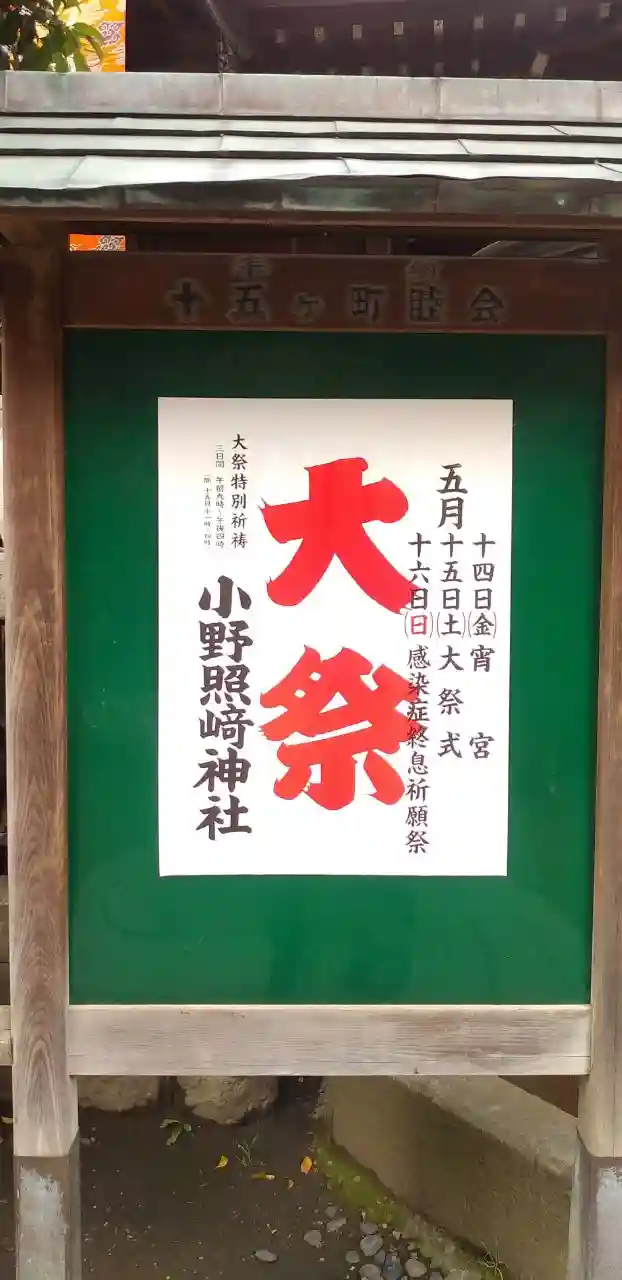 奉納
十五ヶ町睦会
五月
十四日(金)宵宮
十五日(土)大祭式
十六日(日)感染症終息祈願祭
大祭
大祭特別祈祷
三日間 午前九時〜午後四時
小野照崎神社